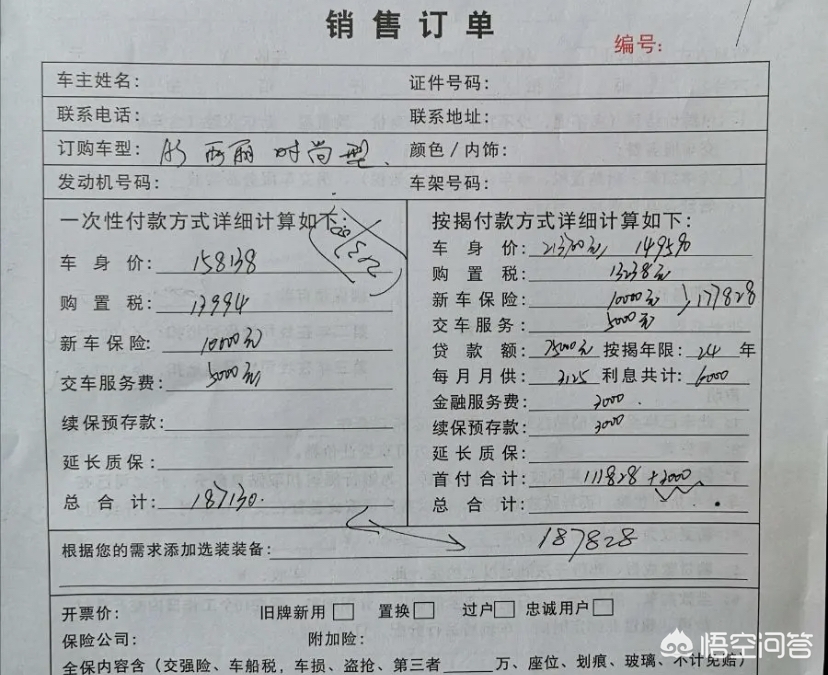 销售订单
编号:
车主姓名: 证件号码:
联系电话: 联系地址:
订购车型: A3 两厢 时尚型 颜色/内饰:
发动机号码: 车架号码:
一次性付款方式详细计算如下:
车身价: 158138
购置税: 13994
新车保险: 10000元
交车服务费: 5000元
续保预存款:
延长质保:
总合计: 187130.
按揭付款方式详细计算如下:
车身价: 149590
购置税: 13238元
新车保险: 10000元
交车服务: 5000元
177828
贷款额: 75000元 按揭年限: 24 年
每月月供: 3125 利息共计: 6000
金融服务费: 3000.
续保预存款: 3000
延长质保:
首付合计: 117828+3000
总合计:
187828
根据您的需求添加选装装备:
开票价: 旧牌新用 置换 过户 忠诚用户
保险公司: 附加险:
全保内容含(交强险、车船税,车损、盗抢、第三者 万、座位、划痕、玻璃、不计免赔)
悟空问答